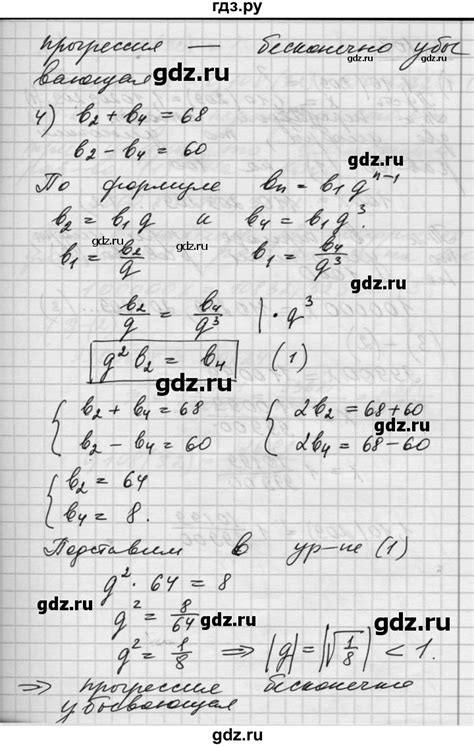 гдз.ру
прогрессия — бесконечно убы
вающая
gdz.ru
4) b₂ + b₄ = 68
b₂ − b₄ = 60
gdz.ru
По формуле bₙ = b₁ q^(n−1)
b₂ = b₁ q и b₄ = b₁ q³.
gdz.ru gdz.ru
b₁ = b₂/q b₁ = b₄/q³
gdz.ru
b₂/q = b₄/q³ | · q³
q² b₂ = b₄ (1)
gdz.ru
{ b₂ + b₄ = 68 { 2b₂ = 68 + 60
{ b₂ − b₄ = 60 { 2b₄ = 68 − 60
gdz.ru gdz.ru
{ b₂ = 64
{ b₄ = 8.
gdz.ru
Подставим в ур-не (1)
q² · 64 = 8
gdz.ru gdz.ru
q² = 8/64
q² = 1/8 ⇒ |q| = |√(1/8)| < 1.
gdz.ru
⇒ прогрессия бесконечно
убывающая
gdz.ru gdz.ru